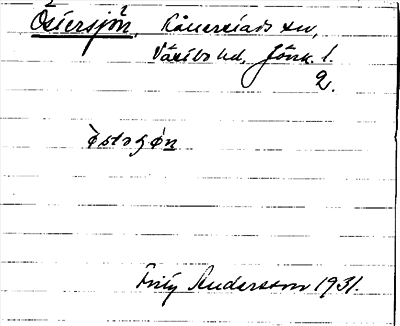 Östersjön, Kånnestads sn,
Västbo hd, Jönk. l.
2.
òstəʃø̀n
Fritz Andersson 1931.